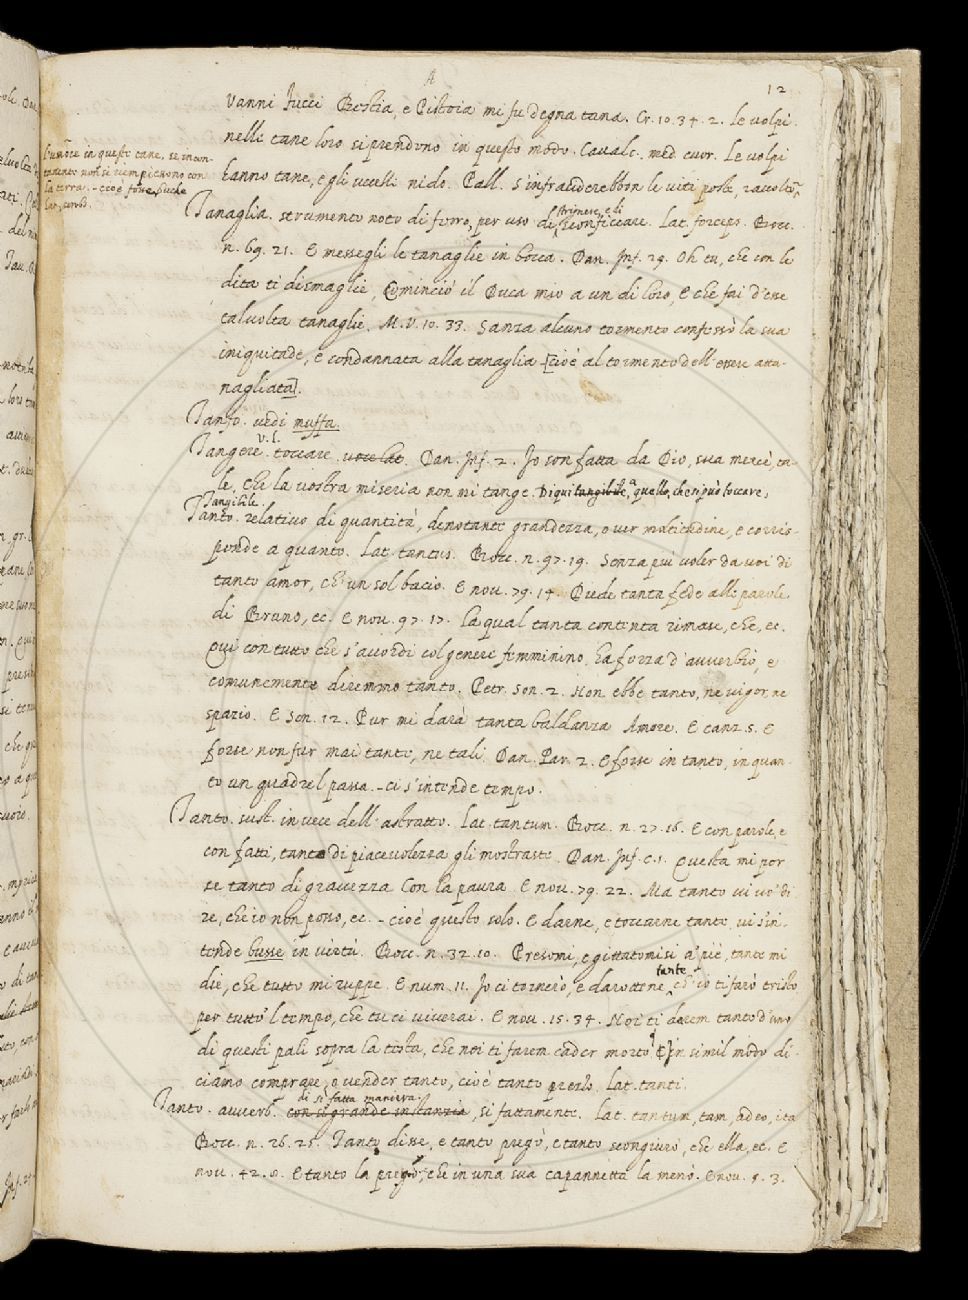 A
12
Vanni Fucci Bestia, e Pistoia mi fu degna tana. Cr. 10. 34. 2. Le volpi
nelle tane loro si prendono in questo modo. Cavalc. med. cuor. Le volpi
hanno tane, e gli uccelli nido. Pall. S'infracidenebbon le viti poste, raccolto
l'umore in queste tane, se incon-
tanente non si riempiessono con
la terra. - cioè fosse, buche
Lat. scrob.
Tanaglia. strumento noto di ferro, per uso di strignere, e di sconficcare. Lat. forceps. Bocc.
n. 69. 21. E messegli le tanaglie in bocca. Dan. Inf. 29. Oh tu, che con le
dita ti dismaglie, Cominciò il Duca mio a un di loro, E che fai d'esse
talvolta tanaglie. M.V. 10. 33. Sanza alcuno tormento confessò la sua
iniquitade, e condannata alla tanaglia [cioè al tormento dell'essere atta-
nagliata].
Tanfo. vedi muffa.
Tangere. v. l. toccare. voce lat. Dan. Inf. 2. Io son fatta da Dio, sua mercè, ta-
le, Che la vostra miseria non mi tange. Di qui tangibile, quello, che si può toccare,
Tangibile.
Tanto. relativo di quantità, denotante grandezza, o ver moltitudine, e corris-
ponde a quanto. Lat. tantus. Bocc. n. 97. 19. Senza più voler da voi di
tanto amor, ch'un sol bacio. E nov. 79. 14. Diede tanta fede alle parole
di Bruno, ec. E nov. 97. 17. La qual tanta contenta rimase, che, ec.
Qui con tutto che s'accordi col genere femminino, ha forza d'avverbio, e
comunemente diremmo tanto. Petr. son. 2. Non ebbe tanto, ne vigor, ne
spazio. E son. 12. Pur mi darà tanta baldanza Amore. E canz. 5. E
forse non fur mai tante, ne tali. Dan. Par. 2. E forse in tanto, in quan-
to un quadrel passa. - ci s'intende tempo.
Tanto. sust. in vece dell'astratto. Lat. tantum. Bocc. n. 27. 16. E con parole, e
con fatti, tanto di piacevolezza gli mostraste. Dan. Inf. c. 1. Questa mi por
se tanto di gravezza Con la paura E nov. 79. 22. Ma tanto vi vo' di
re, che io non posso, ec. - cioè questo solo. E darne, e toccarne tante, vi s'in-
tende busse in virtù. Bocc. n. 32. 10. Presomi, e gittatomisi a' piè, tante mi
die, che tutto mi ruppe. E num. 11. Io ci tornerò, e darottene tante, ch'io ti farò tristo
per tutto 'l tempo, che tu ci viverai. E nov. 15. 34. Noi ti darem tanto d'uno
di questi pali sopra la testa, che noi ti farem cader morto. E in simil modo di-
ciamo comprare, o vender tanto, cioè tanto prezzo. Lat. tanti.
Tanto. avverb. di sì fatta maniera. con sì grande instanzia, sì fattamente. Lat. tantum, tam, adeo, ita
Bocc. n. 26. 25. Tanto disse, e tanto pregò, e tanto scongiurò, che ella, ec. E
nov. 42. 8. E tanto la pregò, che in una sua capannetta la menò. E nov. 9. 3.